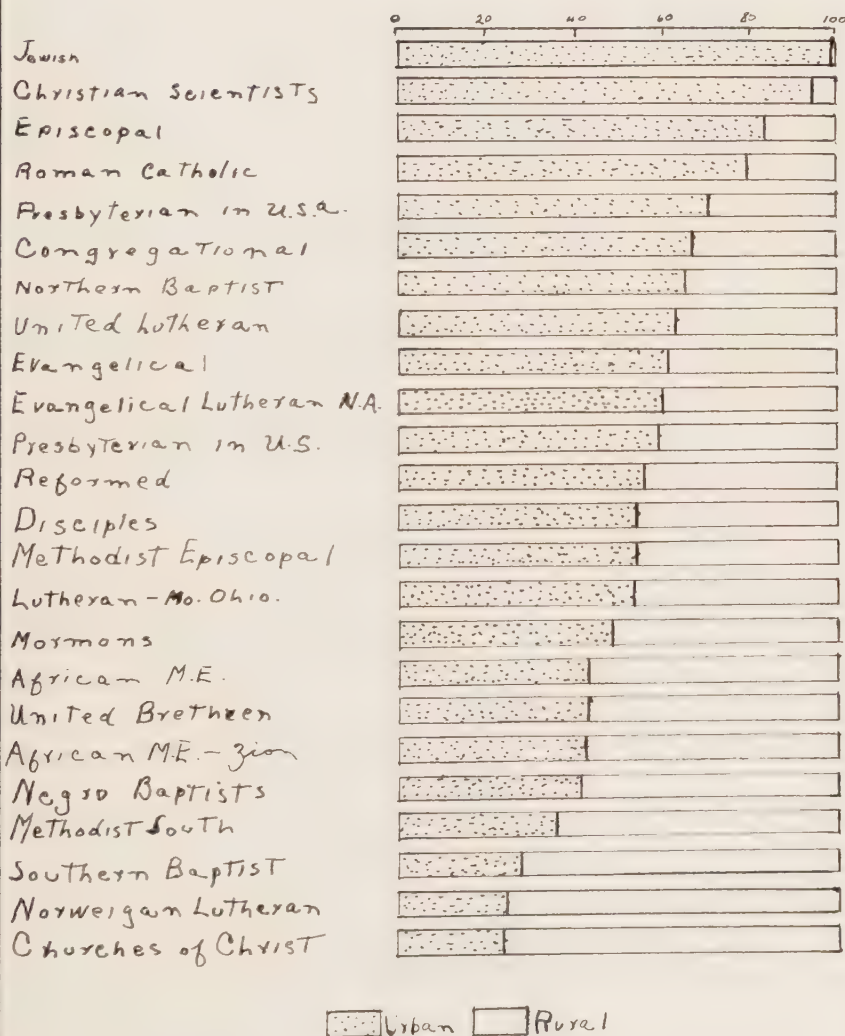 0 20 40 60 80 100
Jewish
Christian Scientists
Episcopal
Roman Catholic
Presbyterian in U.S.a.
Congregational
Northern Baptist
United Lutheran
Evangelical
Evangelical Lutheran N.A.
Presbyterian in U.S.
Reformed
Disciples
Methodist Episcopal
Lutheran - Mo. Ohio.
Mormons
African M.E.
United Brethren
African M.E. - Zion
Negro Baptists
Methodist South
Southern Baptist
Norweigan Lutheran
Churches of Christ
Urban Rural